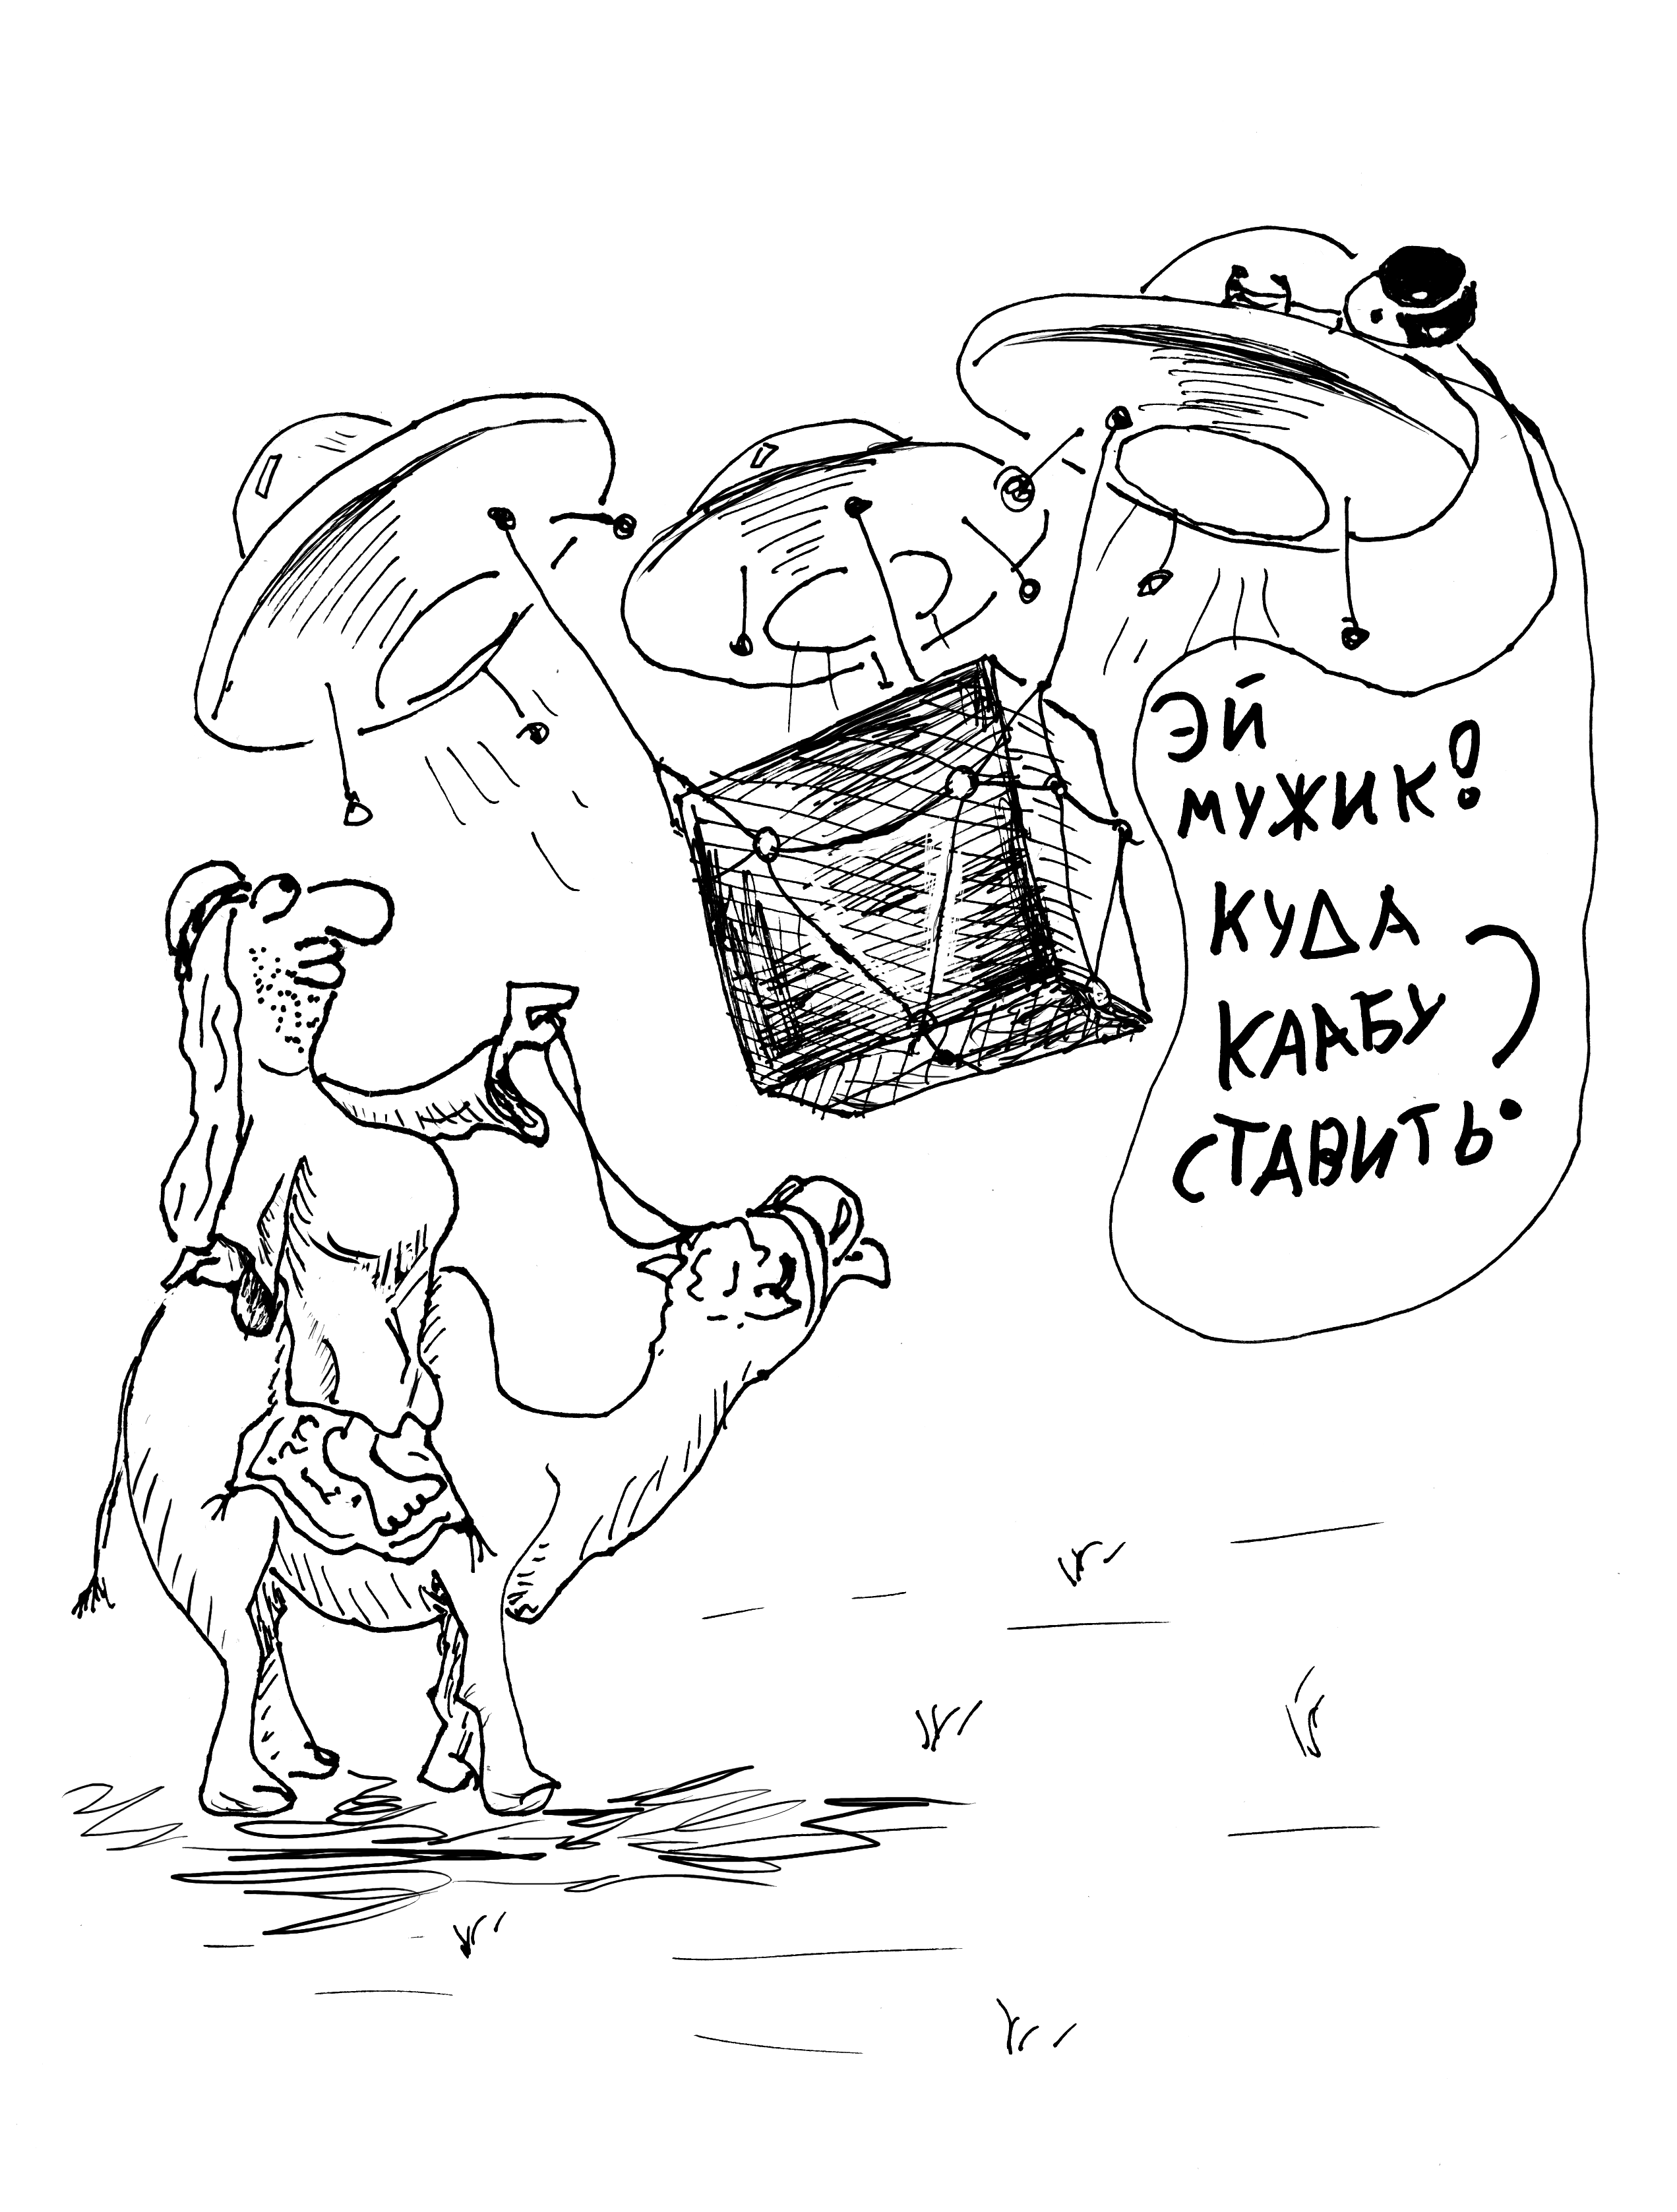 ЭЙ
МУЖИК!
КУДА
КААБУ
СТАВИТЬ?